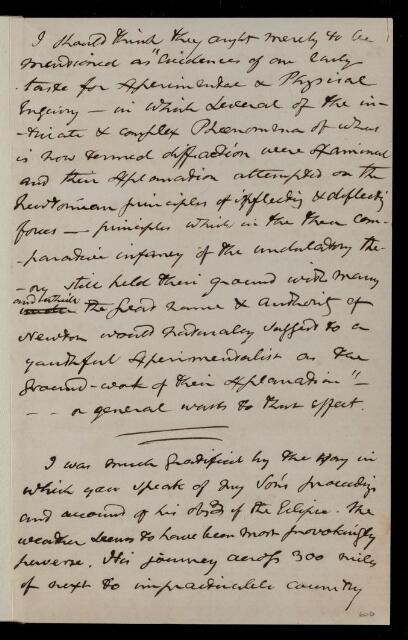 I should think they ought merely to be
mentioned as "Evidences of one early
taste for Experimental & Physical
Inquiry — in which several of the in-
-tricate & complex Phænomena of what
is now termed diffraction were examined
and their explanation attempted on the
Newtonian principles of inflecting & deflecting
forces — principles which in the then com-
-parative infancy of the undulatory the-
-ory still held their ground with many
and which the great name & authority of
Newton would naturally suggest to a
youthful Experimentalist as the
ground-work of their explanation" —
— — or general words to that effect.
I was much gratified by the way in
which you speak of my Son's proceedings
and account of his obsns of the Eclipse. The
weather seems to have been most provokingly
perverse. His journey across 300 miles
of next to impracticable country